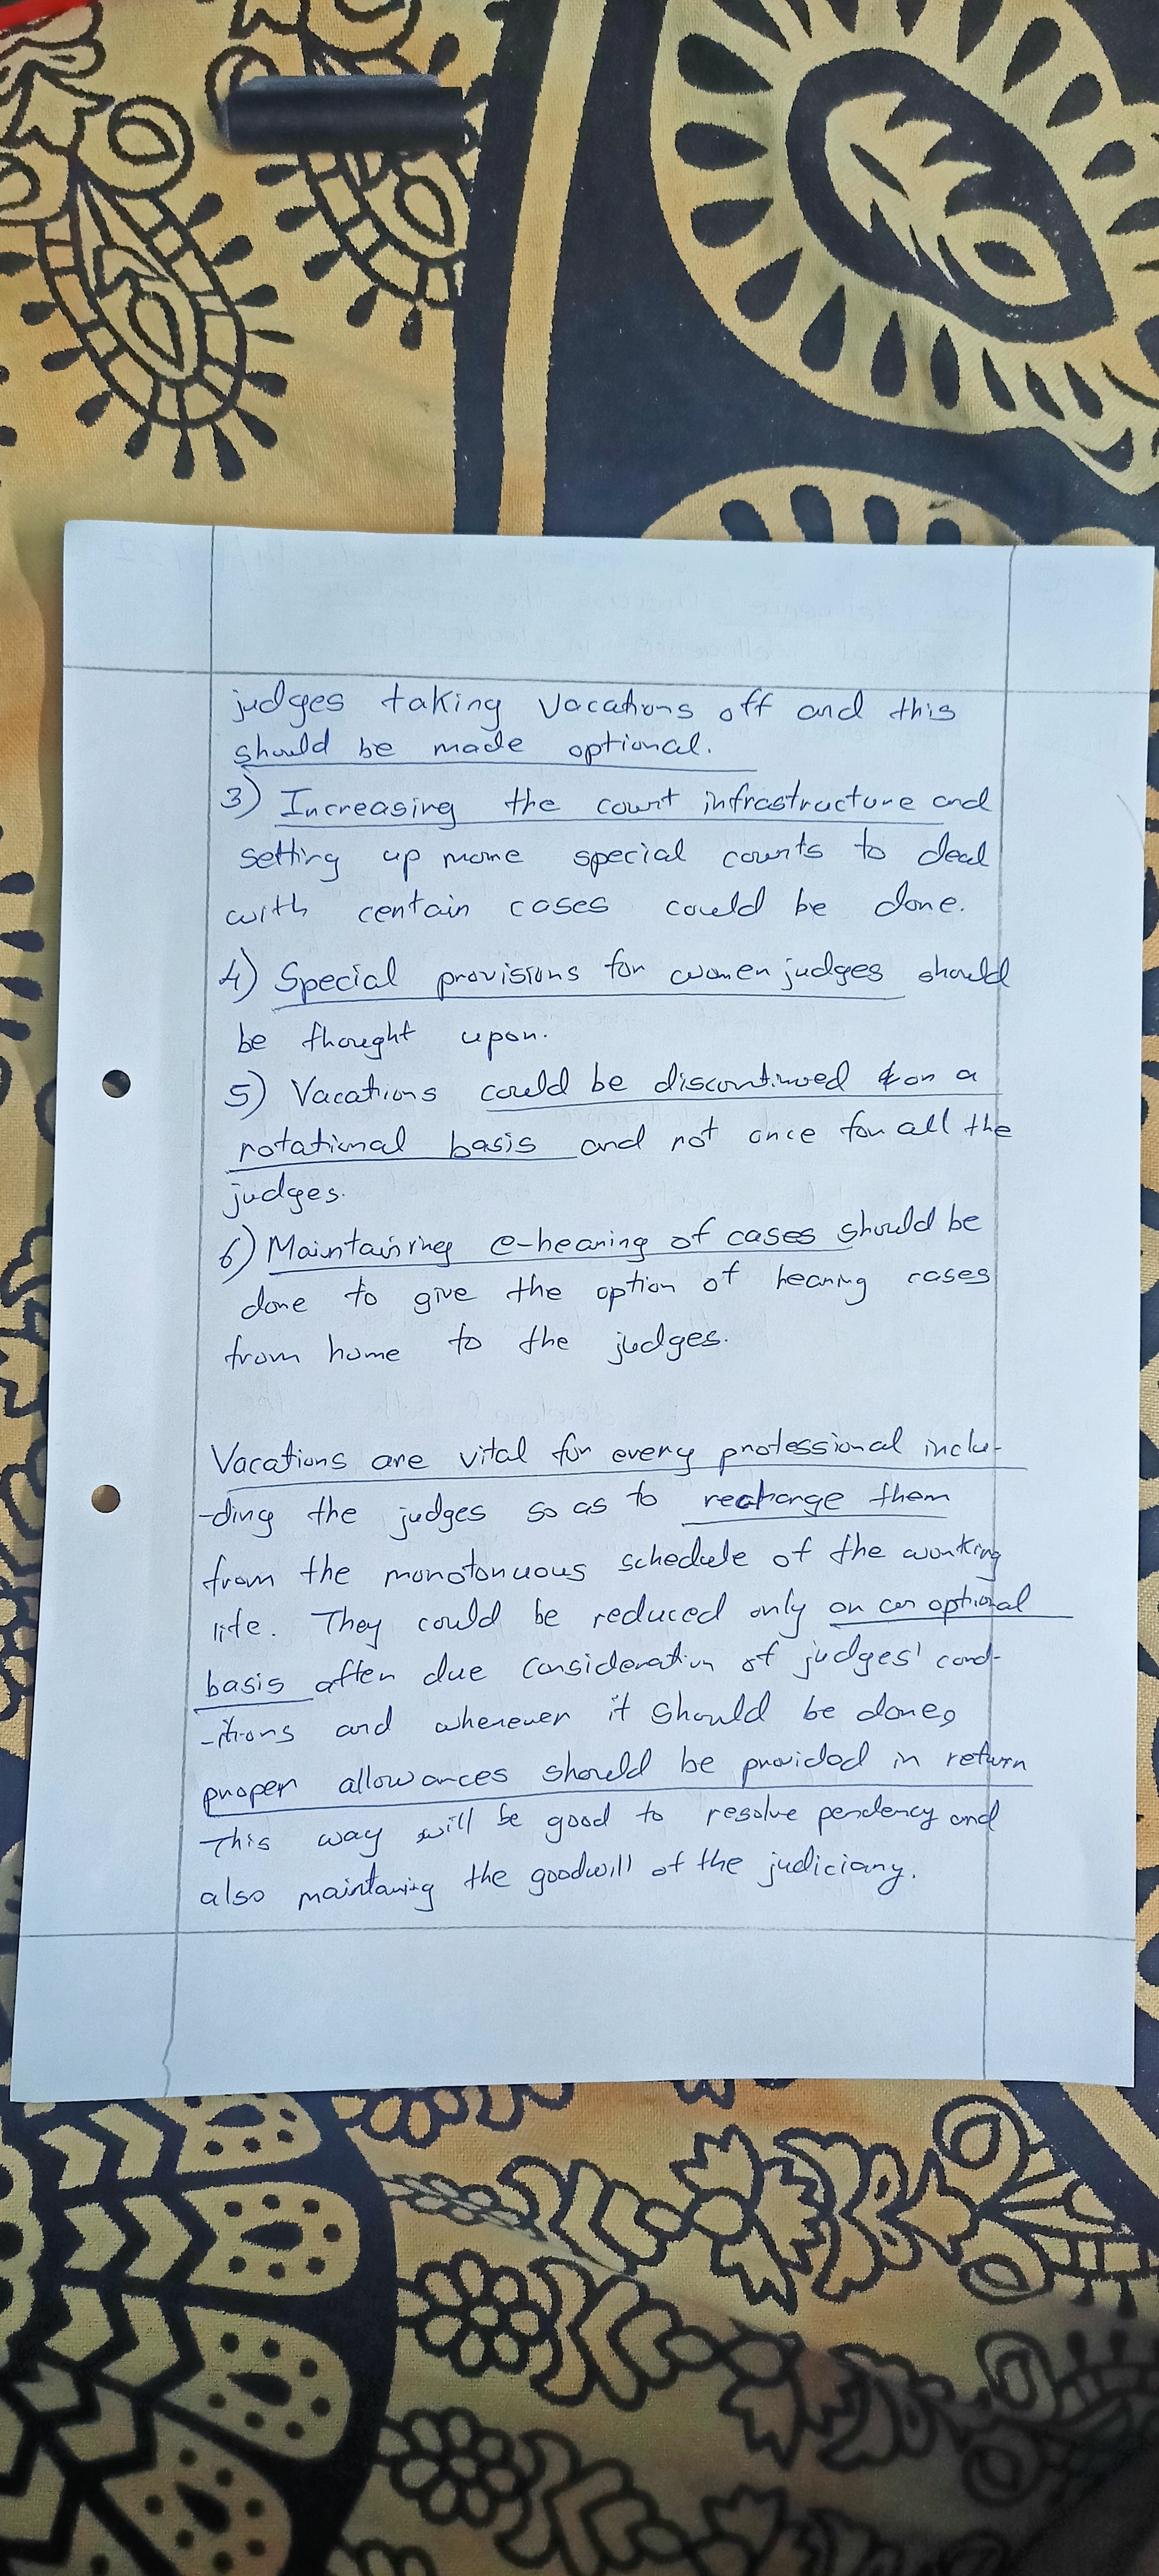 judges taking vacations off and this
should be made optional.
3) Increasing the court infrastructure and
setting up more special courts to deal
with certain cases could be done.
4) Special provisions for women judges should
be thought upon.
5) Vacations could be discontinued on a
rotational basis and not once for all the
judges.
6) Maintainring e-hearing of cases should be
done to give the option of hearing cases
from home to the judges.
Vacations are vital for every professional inclu-
-ding the judges so as to recharge them
from the monotonuous schedule of the working
life. They could be reduced only on an optional
basis after due consideration of judges' cond-
-itions and whenever it should be done,
proper allowances should be provided in return
This way will be good to resolve pendency and
also maintaining the goodwill of the judiciary.